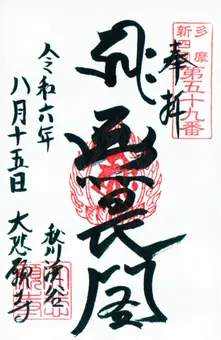 多摩
新四国第五十九番
奉拝
無畏閣
令和六年
八月十五日
秋川渓谷
大悲願寺